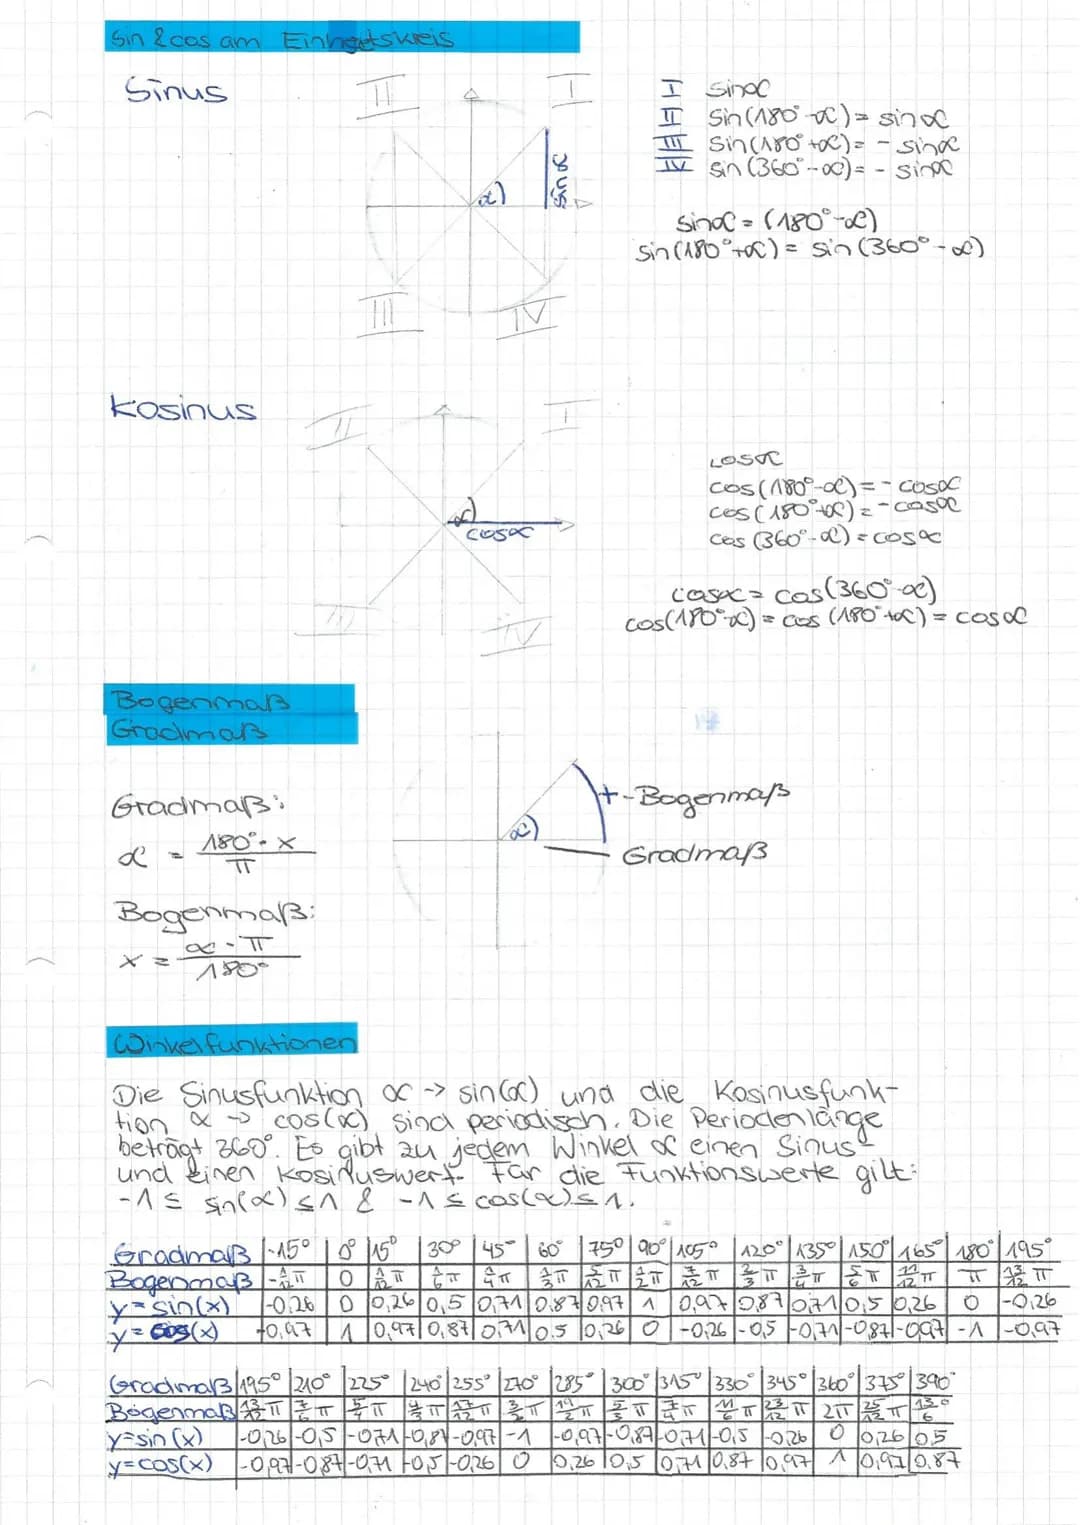 Sin & cos am Einheitskreis
Sinus
II
I
I sinα
II sin(180°-α) = sinα
III sin(180°+α) = - sinα
IV sin(360°-α) = - sinα
α
sin α
sinα = (180°-α)
sin(180°+α) = sin(360°-α)
III
IV
Kosinus
II
I
cosα
cos(180°-α) = - cosα
cos(180°+α) = - cosα
cos(360°-α) = cosα
α
cosα
cosα = cos(360°-α)
cos(180°-α) = cos(180°+α) = cosα
III
IV
Bogenmaß
Gradmaß
Gradmaß:
α = 180° · x / π
Bogenmaß:
x = α · π / 180°
α
Bogenmaß
Gradmaß
Winkelfunktionen
Die Sinusfunktion α -> sin(α) und die Kosinusfunk-
tion α -> cos(α) sind periodisch. Die Periodenlänge
beträgt 360°. Es gibt zu jedem Winkel α einen Sinus-
und einen Kosinuswert. Für die Funktionswerte gilt:
-1 ≤ sin(α) ≤ 1 & -1 ≤ cos(α) ≤ 1.
Gradmaß -15° 0° 15° 30° 45° 60° 75° 90° 105° 120° 135° 150° 165° 180° 195°
Bogenmaß -1/12 π 0 1/12 π 1/6 π 1/4 π 1/3 π 5/12 π 1/2 π 7/12 π 2/3 π 3/4 π 5/6 π 11/12 π π 13/12 π
y = sin(x) -0,26 0 0,26 0,5 0,71 0,87 0,97 1 0,97 0,87 0,71 0,5 0,26 0 -0,26
y = cos(x) -0,97 1 0,97 0,87 0,71 0,5 0,26 0 -0,26 -0,5 -0,71 -0,87 -0,97 -1 -0,97
Gradmaß 195° 210° 225° 240° 255° 270° 285° 300° 315° 330° 345° 360° 375° 390°
Bogenmaß 13/12 π 7/6 π 5/4 π 4/3 π 17/12 π 3/2 π 19/2 π 5/3 π 7/4 π 11/6 π 23/12 π 2π 25/12 π 13/6
y=sin(x) -0,26 -0,5 -0,71 -0,87 -0,97 -1 -0,97 -0,87 -0,71 -0,5 -0,26 0 0,26 0,5
y=cos(x) -0,97 -0,87 -0,71 -0,5 -0,26 0 0,26 0,5 0,71 0,87 0,97 1 0,97 0,87